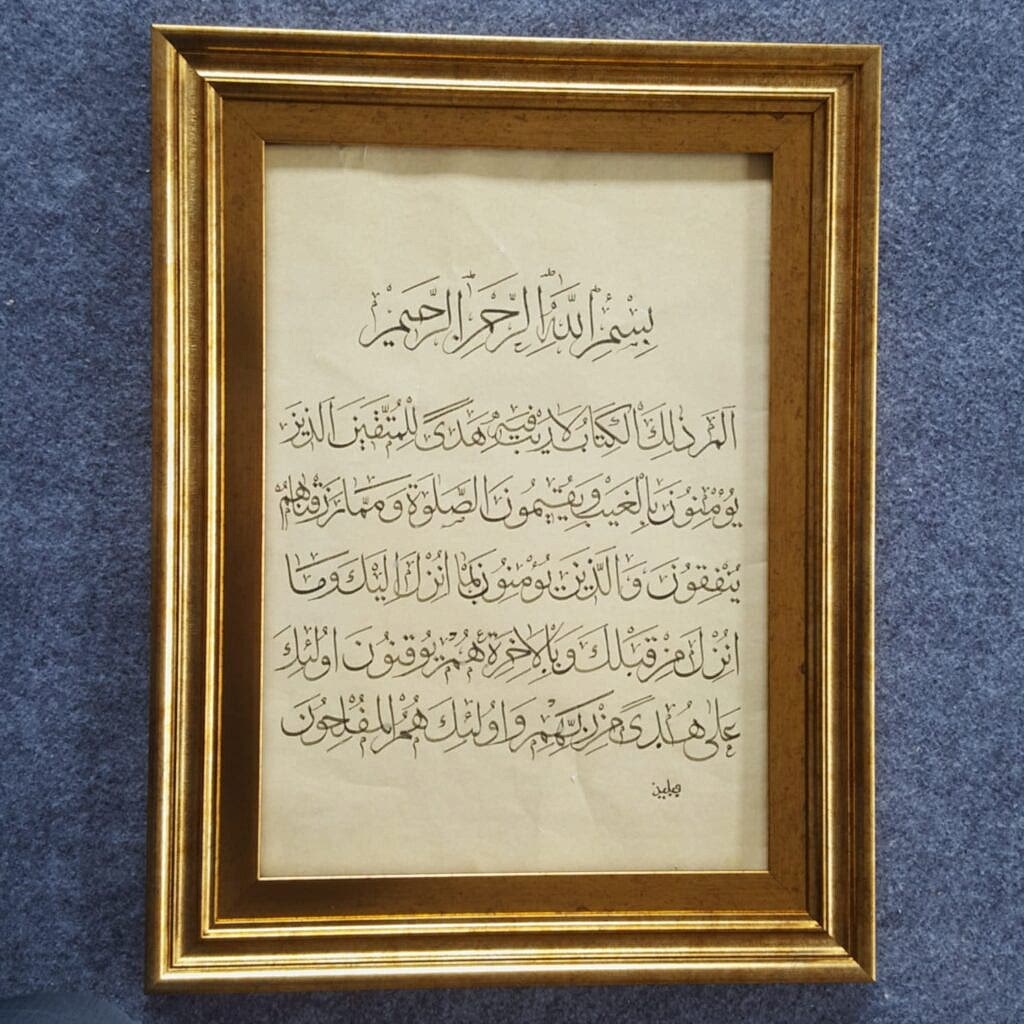 بِسْمِ اللَّهِ الرَّحْمٰنِ الرَّحِيمِ
الٓمٓ ذٰلِكَ الْكِتَابُ لَا رَيْبَ فِيهِ هُدًى لِلْمُتَّقِينَ الَّذِينَ
يُؤْمِنُونَ بِالْغَيْبِ وَيُقِيمُونَ الصَّلٰوةَ وَمِمَّا رَزَقْنَاهُمْ
يُنْفِقُونَ وَالَّذِينَ يُؤْمِنُونَ بِمَا أُنْزِلَ إِلَيْكَ وَمَا
أُنْزِلَ مِنْ قَبْلِكَ وَبِالْآخِرَةِ هُمْ يُوقِنُونَ أُولٰئِكَ
عَلٰى هُدًى مِنْ رَبِّهِمْ وَأُولٰئِكَ هُمُ الْمُفْلِحُونَ